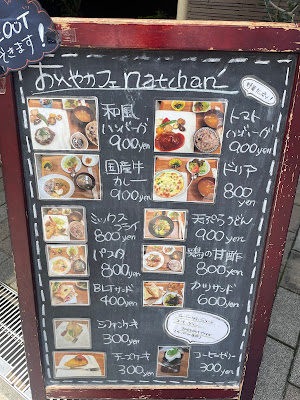 OOT
できます!
おへやカフェ natchan'
和風
ハンバーグ
900yen
トマト
ハンバーグ
900yen
国産牛
カレー
900yen
ドリア
800
yen
ミックス
フライ
800yen
天ぷらうどん
900yen
パスタ
800yen
鶏の甘酢
800yen
BLTサンド
400yen
カツサンド
600yen
シフォンケーキ
300yen
チーズケーキ
300yen
コーヒーゼリー
300yen